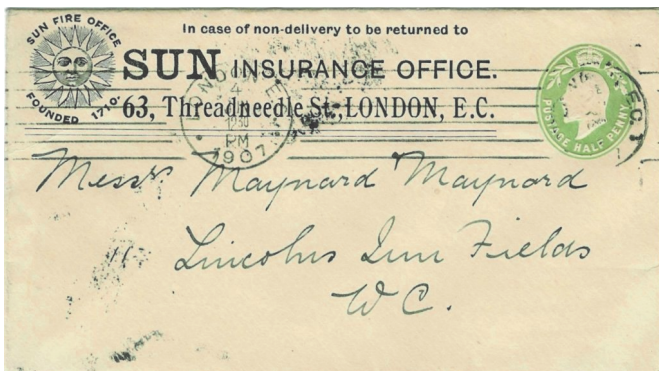 In case of non-delivery to be returned to
SUN FIRE OFFICE
FOUNDED 1710.
SUN INSURANCE OFFICE.
63, Threadneedle St., LONDON, E.C.
1907
PM
POSTAGE HALF PENNY
E.C.
Messrs Maynard Maynard
Lincolns Inn Fields
W C.